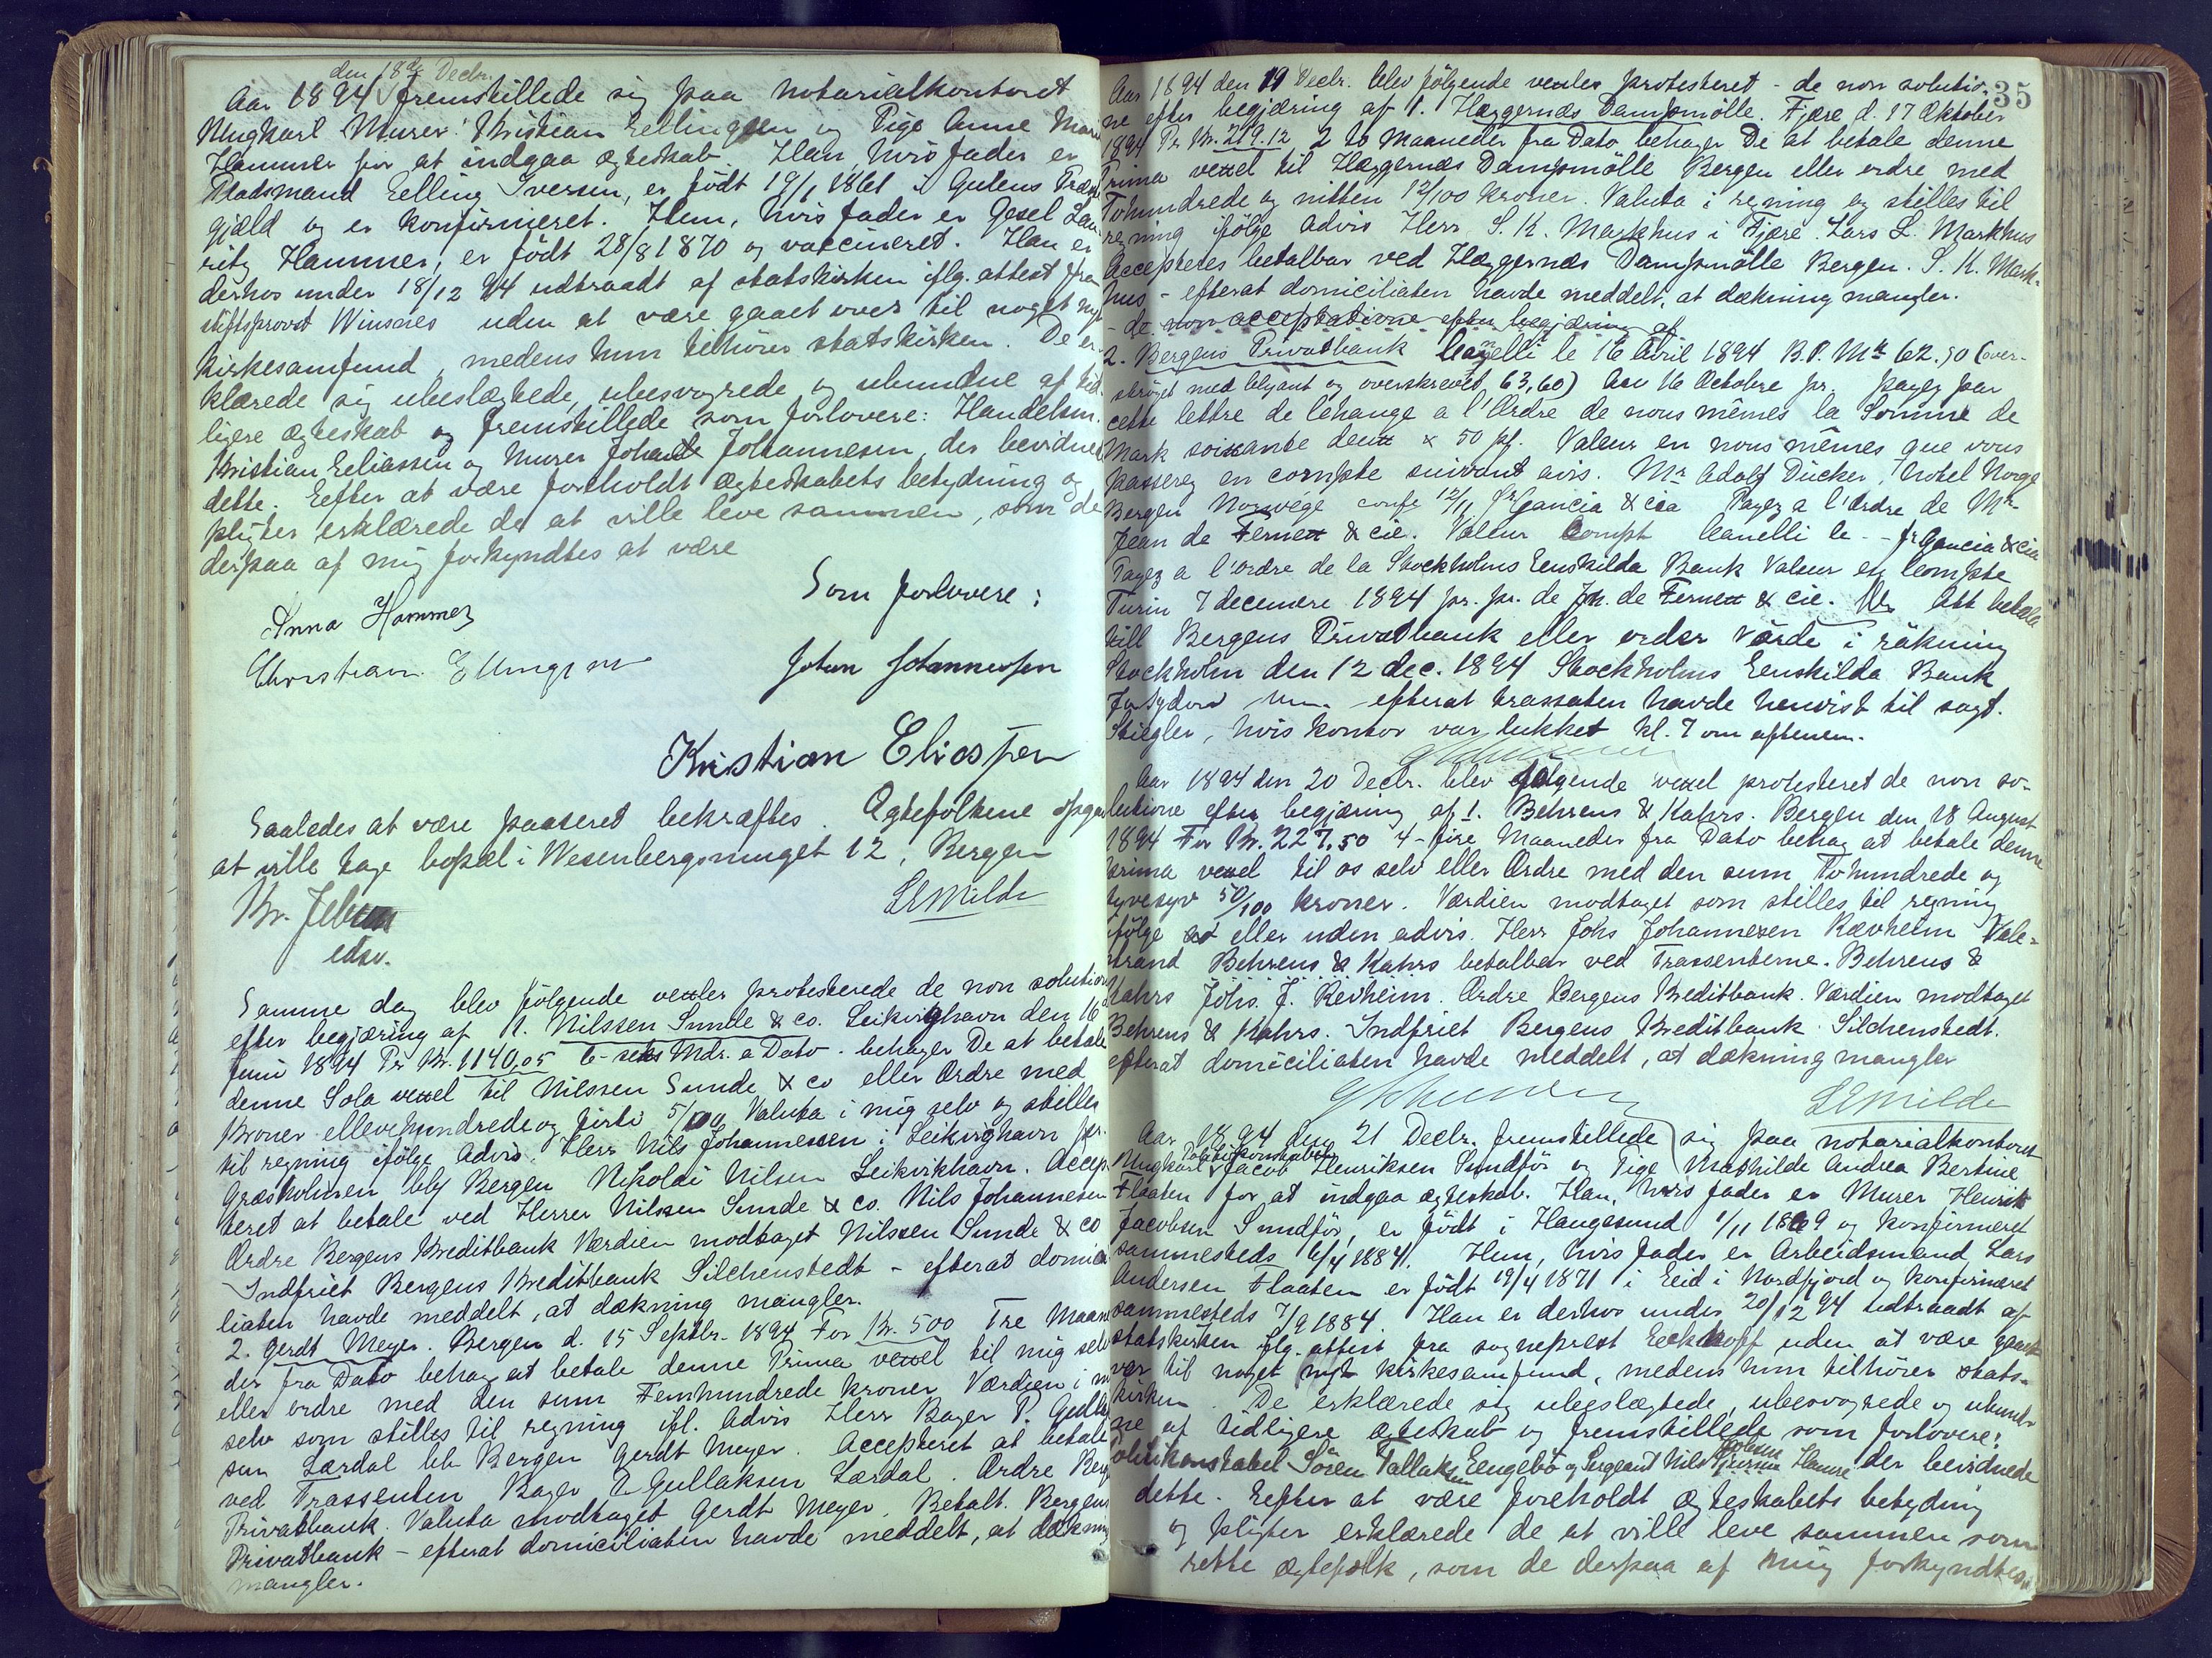 den 18de Decbr.
Aar 1894 fremstillede sig paa Notarialkontoret
Ungkarl Murer Kristian Ellingsen og Pige Anne Marie
Hammer for at indgaa ægteskab. Han, hvis fader er
Pladsmand Elling Iversen, er født 19/1 1861 i Gulens Præste
gjæld og er konfirmeret. Hun, hvis fader er Gesel Lau
ritz Hammer, er født 28/8 1870 og vaccineret. Han er
derhos under 18/12 94 udtraadt af statskirken iflg. attest fra
stiftsprovst Winsnes uden at være gaaet over til noget nyt
kirkesamfund, medens hun tilhører statskirken. De er
klærede sig ubeslægtede, ubesvogrede og ubundne af tid
ligere ægteskab og fremstillede som forlovere: Handelsm.
Kristian Eeliassen og Murer Johan Johannesen, der bevidnede
dette. Eefter at være foreholdt ægteskabets betydning og
pligter erklærede de at ville leve sammen, som de
derpaa af mig forkyndtes at være
Som forlovere:
Anna Hammer
Christian Ellingsen
Johan Johannessen
Kristian Eliassen
Saaledes at være passeret bekræftes. Ægtefolkene opgav
at ville tage bopæl i Wesenbergsmuget 12, Bergen
Kr. Jebsen
edsv.
LEMilde
Samme dag blev følgende vexler protesterede de non solutione
efter begjæring af 1. Nilssen Sunde & co. Leikvighavn den 16
Juni 1894 Pr Kr. 1140,05 6 - seks Mdr. a Dato behager De at betale
denne Sola vexel til Nilssen Sunde & co eller Ordre med
Kroner ellevehundrede og firti 5/100 Valuta i mig selv og stilles
til regning ifølge Advis. Herr Nils Johannessen i Leikvighavn pr.
Græsholmen bby Bergen Nikolai Nilsen Leikvikhavn. Accep
teret at betale ved Herrer Nilssen Sunde & co. Nils Johannesen
Ordre Bergens Kreditbank Værdien modtaget Nilssen Sunde & co
Indfriet Bergens Kreditbank Silchenstedt - efterat domici
liaten havde meddelt, at dækning mangler.
2. Gerdt Meyer. Bergen d. 15 Septbr. 1894 For Kr. 500 Tre Maane
der fra Dato behag at betale denne Prima vexel til mig selv
eller ordre med den sum Femhundrede kroner Værdien i m
selv som stilles til regning ifl. Advis Herr Bager P. Gulla
sen Lærdal bb Bergen Gerdt Meyer. Accepteret at betale
ved Trassenten Bager P Gullaksen Lærdal. Ordre Berg
Privatbank. Valuta modtaget Gerdt Meyer. Betalt. Bergens
Privatbank - efterat domiciliaten havde meddelt, at dækning
mangler.
35
Aar 1894 den 19 Decbr. blev følgende vexler protesteret - de non solutio-
ne efter begjæring af 1. Hæggernæs Dampmølle. Fjære d. 17 Oktober
1894 Pr Kr. 219.12 2 to Maaneder fra Dato behager De at betale denne
Prima vexel til Hæggernæs Dampmølle Bergen eller ordre med
Tohundrede og nitten 12/100 kroner. Valuta i regning og stilles til
regning ifølge Advis Herr S. K. Markhus i Fjære. Lars L. Markhus
Accepteres betalbar ved Hæggernæs Dampmølle Bergen. S. K. Mark-
hus - efterat domiciliaten havde meddelt, at dækning mangler.
- de non acceptatione efter begjæring af
2. Bergens Privatbank Canelli le 16 Avril 1894 B.P. Mk 62.50 (over-
strøget med blyant og overskrevet 63,60) Au 16 Octobre pr. payez par
cette lettre de Change a l'Ordre de nous mêmes la Somme de
Mark soixante deux & 50 pf. Valeur en nous mêmes que vous
passerez en compte suivant avis. Mr Adolf Dücker, Hotel Norge
Bergen Norvége Fr Gancia & cia Payez a l'ordre de Mr-
Jean de Fernex & cie. Valeur Compt Canelli le - fr Gancia & cia
Payez a l'ordre de la Stockholms Enskilda Bank Valeur en Compte
Turin 7 decembre 1894 pr. pr. de Jn. de Fernex & cie. Att betala
till Bergens Privatbank eller order Värde i räkning
Stockholm den 12 dec. 1894 Stockholms Enskilda Bank
efterat trassaten havde henvist til sagf.
Stiegler, hvis kontor var lukket kl. 7 om aftenen.
Aar 1894 den 20 Decbr. blev følgende vexel protesteret de non so-
lutione efter begjæring af 1. Behrens & Kahrs. Bergen den 18 August
1894 For Kr. 227.50 4 - fire Maaneder fra Dato behag at betale denne
prima vexel til os selv eller Ordre med den sum Tohundrede og
tyvesyv 50/100 kroner. Værdien modtaget som stilles til regning
ifølge eller uden advis. Herr Johs Johannesen Rævheim Vale-
strand Behrens & Kahrs betalbar ved Trassenterne. Behrens &
Kahrs Johs. J. Revheim. Ordre Bergens Kreditbank. Værdien modtaget
Behrens & Kahrs. Indfriet Bergens Kreditbank Silchenstedt.
efterat domiciliaten havde meddelt, at dækning mangler
LEMilde
Aar 1894 den 21 Decbr. fremstillede sig paa notarialkontoret
Politikonstabel
Ungkarl Jacob Henriksen Sundfør og Pige Mathilde Andrea Bertine
Flaaten for at indgaa ægteskab. Han, hvis fader er Murer Henrik
Jacobsen Sundfør, er født i Haugesund 1/11 1869 og konfirmeret
sammesteds 6/4 1884. Hun, hvis fader er Arbeidsmand Lars
Andersen Flaaten er født 19/4 1871 i Eid i Nordfjord og konfirmeret
sammesteds 7/9 1884. Han er derhos under 20/12 94 udtraadt af
statskirken iflg. attest fra sogneprest Eckhoff uden at være gaaet
over til noget nyt kirkesamfund, medens hun tilhører stats-
kirken. De erklærede sig ubeslægtede, ubesvogrede og ubund-
ne af tidligere ægteskab og fremstillede som forlovere:
Politikonstabel Søren Tallaksen Eengebø og Sergeant Nils Hamre der bevidnede
dette. Eefter at være foreholdt ægteskabets betydning
og pligter erklærede de at ville leve sammen som
rette ægtefolk, som de derpaa af mig forkyndtes